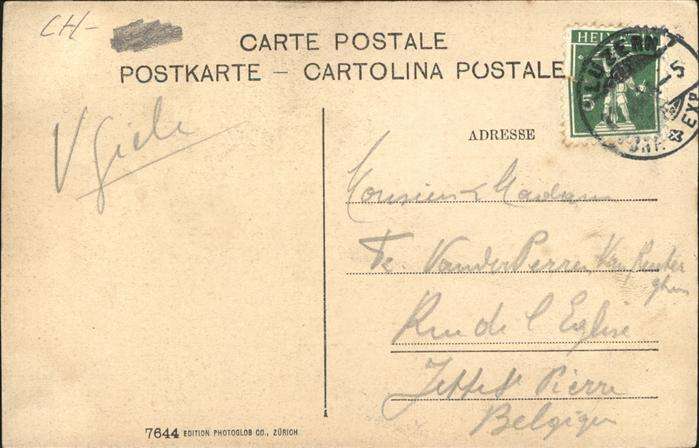 CH-
CARTE POSTALE
POSTKARTE – CARTOLINA POSTALE
HELV
LUZERN
5
EXP
V Giele
ADRESSE
Monsieur & Madame
Fz. VanderPerren Van
Rue de l'Eglise
Jette St Pierre
Belgique
7644 EDITION PHOTOGLOB CO., ZÜRICH